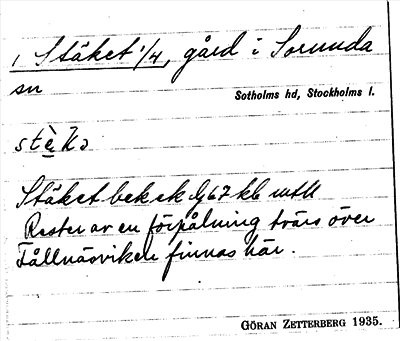 1 Stäket 1/4, gård i Sorunda
sn
Sotholms hd, Stockholms l.
stèkə
Stäket bek ek
Rester av en förpålning tvärs över
Fållnäsviken finnas här.
GÖRAN ZETTERBERG 1935.